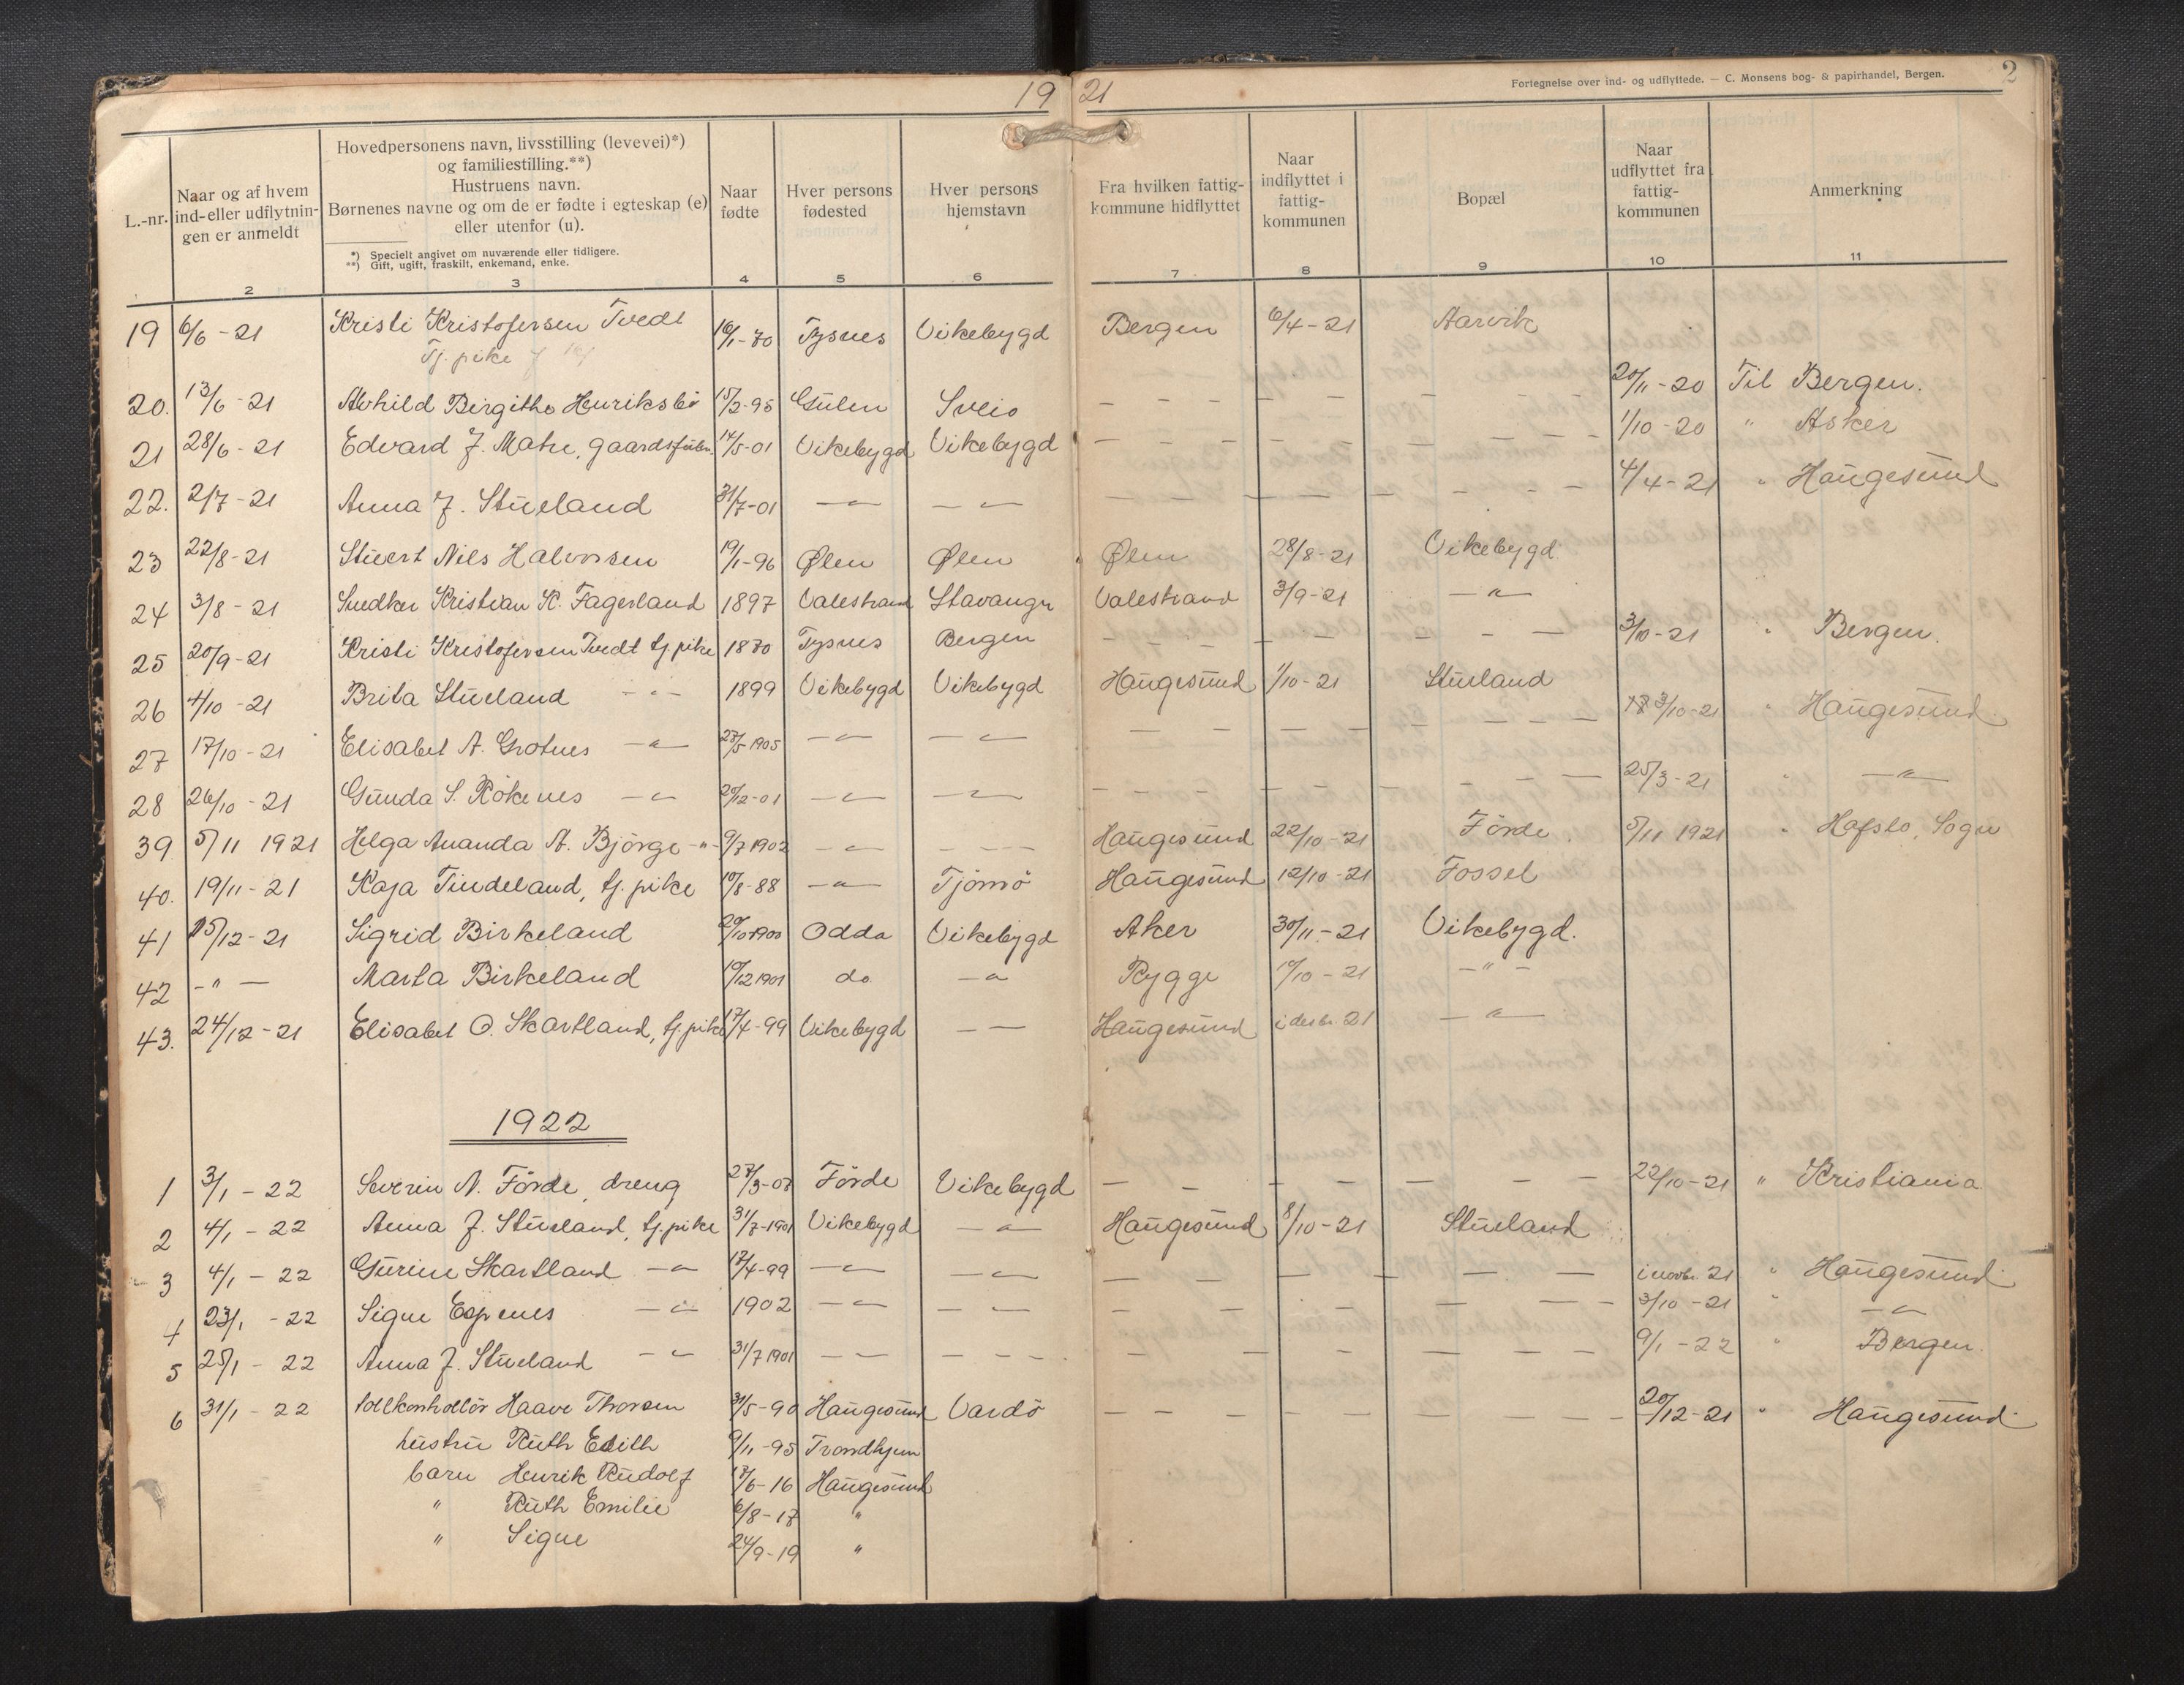 19 21
Fortegnelse over ind- og udflyttede. — C. Monsens bog- & papirhandel, Bergen. 2
L.-nr.
Naar og af hvem
ind-eller udflytnin-
gen er anmeldt
2
Hovedpersonens navn, livsstilling (levevei)*)
og familiestilling.**)
Hustruens navn.
Børnenes navne og om de er fødte i egteskap (e)
eller utenfor (u).
*) Specielt angivet om nuværende eller tidligere.
**) Gift, ugift, fraskilt, enkemand, enke.
3
Naar
fødte
4
Hver persons
fødested
5
Hver persons
hjemstavn
6
Fra hvilken fattig-
kommune hidflyttet
7
Naar
indflyttet i
fattig-
kommunen
8
Bopæl
9
Naar
udflyttet fra
fattig-
kommunen
10
Anmerkning
11
19 6/6 - 21 Kristi Kristofersen Tvedt 16/1-70 Tysnes Vikebygd Bergen 6/4-21 Aarvik
Tj. pike
20. 13/6 - 21 Alvhild Birgithe Henriksbö 15/2-95 Gulen Sveio — — — 20/11-20 Til Bergen.
21 28/6 - 21 Edvard J. Matre, 14/5-01 Vikebygd Vikebygd — — — 1/10-20 " Asker
22. 2/7 - 21 Anna J. Stueland 31/7-01 —"— —"— — — — 4/4-21 " Haugesund
23 22/8 - 21 Nils Halvorsen 19/1-96 Ølen Ølen Ølen 28/8-21 Vikebygd
24 3/8 - 21 Snedker Kristian K. Fagerland 1897 Valestrand Stavanger Valestrand 3/9-21 —"—
25 20/9-21 Kristi Kristofersen Tvedt tj. pike 1870 Tysnes Bergen — — — 3/10-21 " Bergen.
26 4/10 - 21 Brita Stueland —"— 1899 Vikebygd Vikebygd Haugesund 1/10-21 Stueland
27 17/10 - 21 Elisabet A. Grotnes —"— 27/5 1905 —"— —"— — — — 3/10-21 " Haugesund
28 26/10 - 21 Gunda S. Rökenes —"— 20/12-01 —"— —"— — — — 25/3-21 " —"—
39 5/11 1921 Helga Ananda A. Bjørge -"- 9/7 1902 —"— — — — Haugesund 22/10-21 Förde. 5/11 1921 " Hafslo, Sogn
40. 19/11 - 21 Kaja Tindeland, tj. pike 10/8-88 —"— Tjömö Haugesund 12/10-21 Fossel
41 15/12 - 21 Sigrid Birkeland 20/10 1900 Odda Vikebygd Aker 30/11-21 Vikebygd.
42 -"- Marta Birkeland 10/12 1901 do. —"— Rygge 10/10-21 —"—
43. 24/12 - 21 Elisabet O. Skartland, tj. pike 17/4-99 Vikebygd — — Haugesund i desbr. 21 —"—
1922
1 3/1 - 22 Severin N. Förde, dreng 27/3-07 Förde Vikebygd — — — 22/10-21 " Kristiania
2 4/1 - 22 Anna J. Stueland, tj. pike 31/7-1901 Vikebygd —"— Haugesund 8/10-21 Stueland
3 4/1 - 22 Gurine Skartland —"— 17/4-99 —"— —"— — — — i novbr. 21 " Haugesund
4 23/1 - 22 Signe Espenes —"— 1902 —"— —"— — — — 3/10-21 " —"—
5 25/1 - 22 Anna J. Stueland —"— 31/7 1901 — — — — — — — 9/1-22 " Bergen.
6 31/1 - 22 Tollkontrollör Haave Thorsen 31/5-90 Haugesund Vardö — — — 20/12-21 " Haugesund
hustru Ruth Edith 9/11-95 Trondhjem
barn Henrik Rudolf 17/6-16 Haugesund
" Ruth Emilie 6/8-17 "
" Signe 24/9-19 "